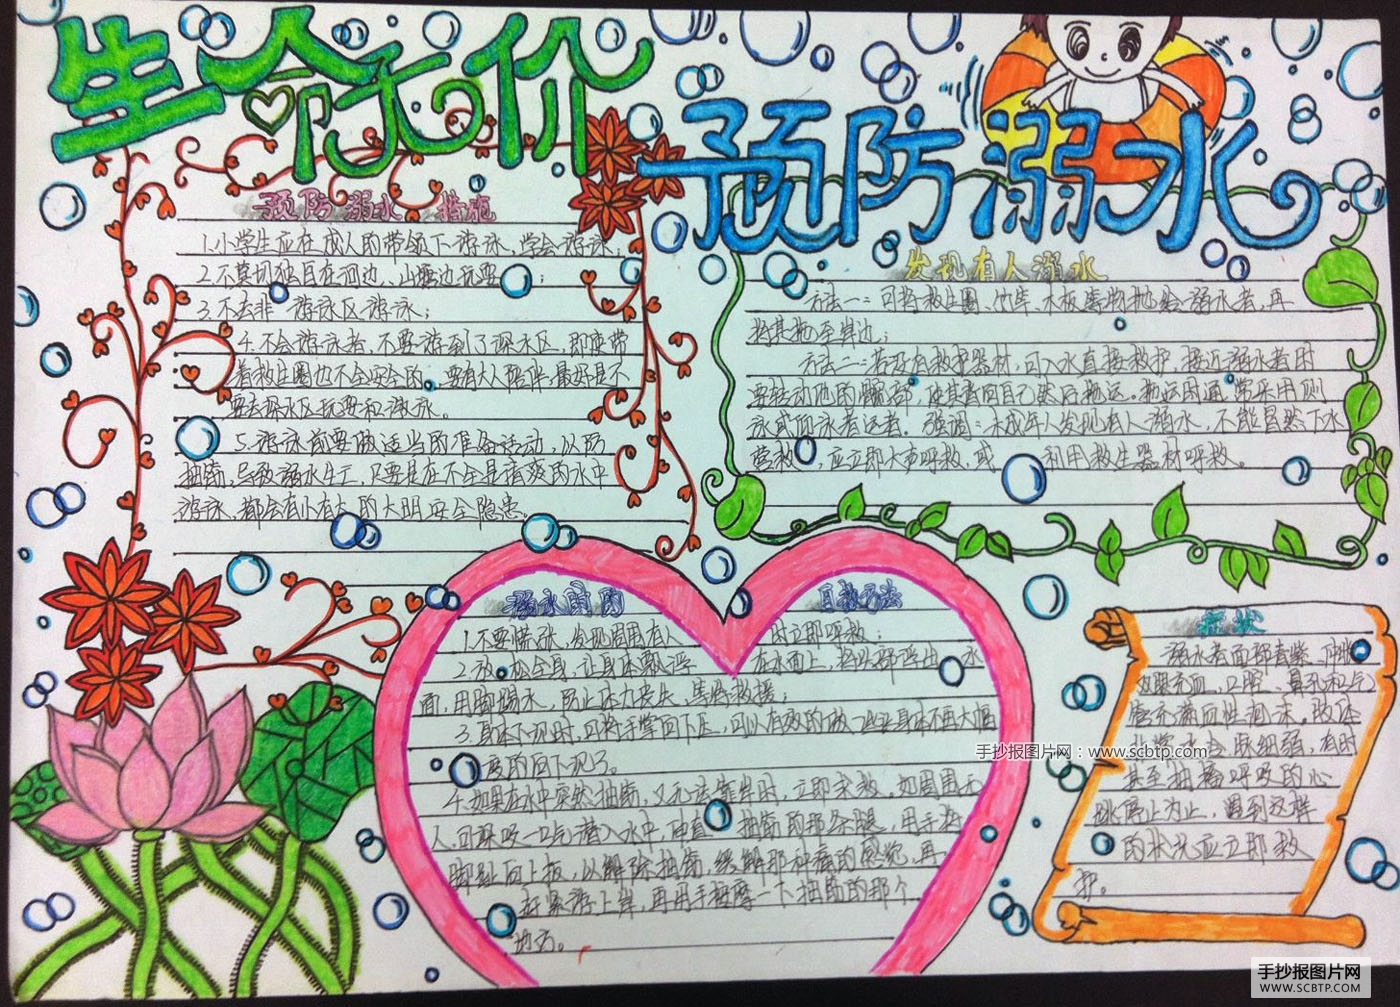 生命无价
预防溺水
预防溺水 措施
1.小学生应在成人的带领下游泳、学会游泳;
2.不莫切独自在河边、山塘边玩耍;
3.不去非游泳区游泳;
4.不会游泳者,不要游到了深水区,即使带
着救生圈也不全安全的。要有大人陪伴,最好是不
要去深水区玩耍和游泳。
5.游泳前要做适当的准备活动,以防
抽筋,导致溺水生工,只要是在不全是清爽的水中
游泳、都会有小有大的大明安全隐患。
发现有人溺水
方法一:可将救生圈、竹竿、木板等物抛给溺水者,再
将其拖至岸边;
方法二:若没有救护器材,可入水直接救护,接近溺水者时
要转动他的髋部,使其背向自己然后拖运。拖运时通常采用侧
泳或仰泳者运者。强调:未成年人发现有人溺水,不能冒然下水
营救,应立即大声呼救,或利用救生器材呼救。
溺水时的 自救方法
1.不要慌张,发现周围有人时立即呼救;
2.放松全身,让身体飘浮在水面上,将头部浮出水
面,用脚踢水,防止体力丧失,等待救援;
3.身体下沉时,可将手掌向下压,可以有效的做让身体不再大幅
度的向下沉了。
4.如果在水中突然抽筋,又无法靠岸时,立即求救。如周围无
人,可深吸一口气潜入水中,伸直抽筋的那条腿,用手将
脚趾向上扳,以解除抽筋,缓解那种痛的感觉,再
赶紧游上岸,再用手按摩一下抽筋的那个
地方。
症状
溺水者面部青紫、肿胀
双眼充血,口腔、鼻孔和气
管充满血性泡沫。肢体
冰冷,脉细弱,有时
甚至抽搐呼吸的心
跳停止为止,遇到这样
的状况应立即救
护。
手抄报图片网:www.scbtp.com
手抄报图片网
WWW.SCBTP.COM